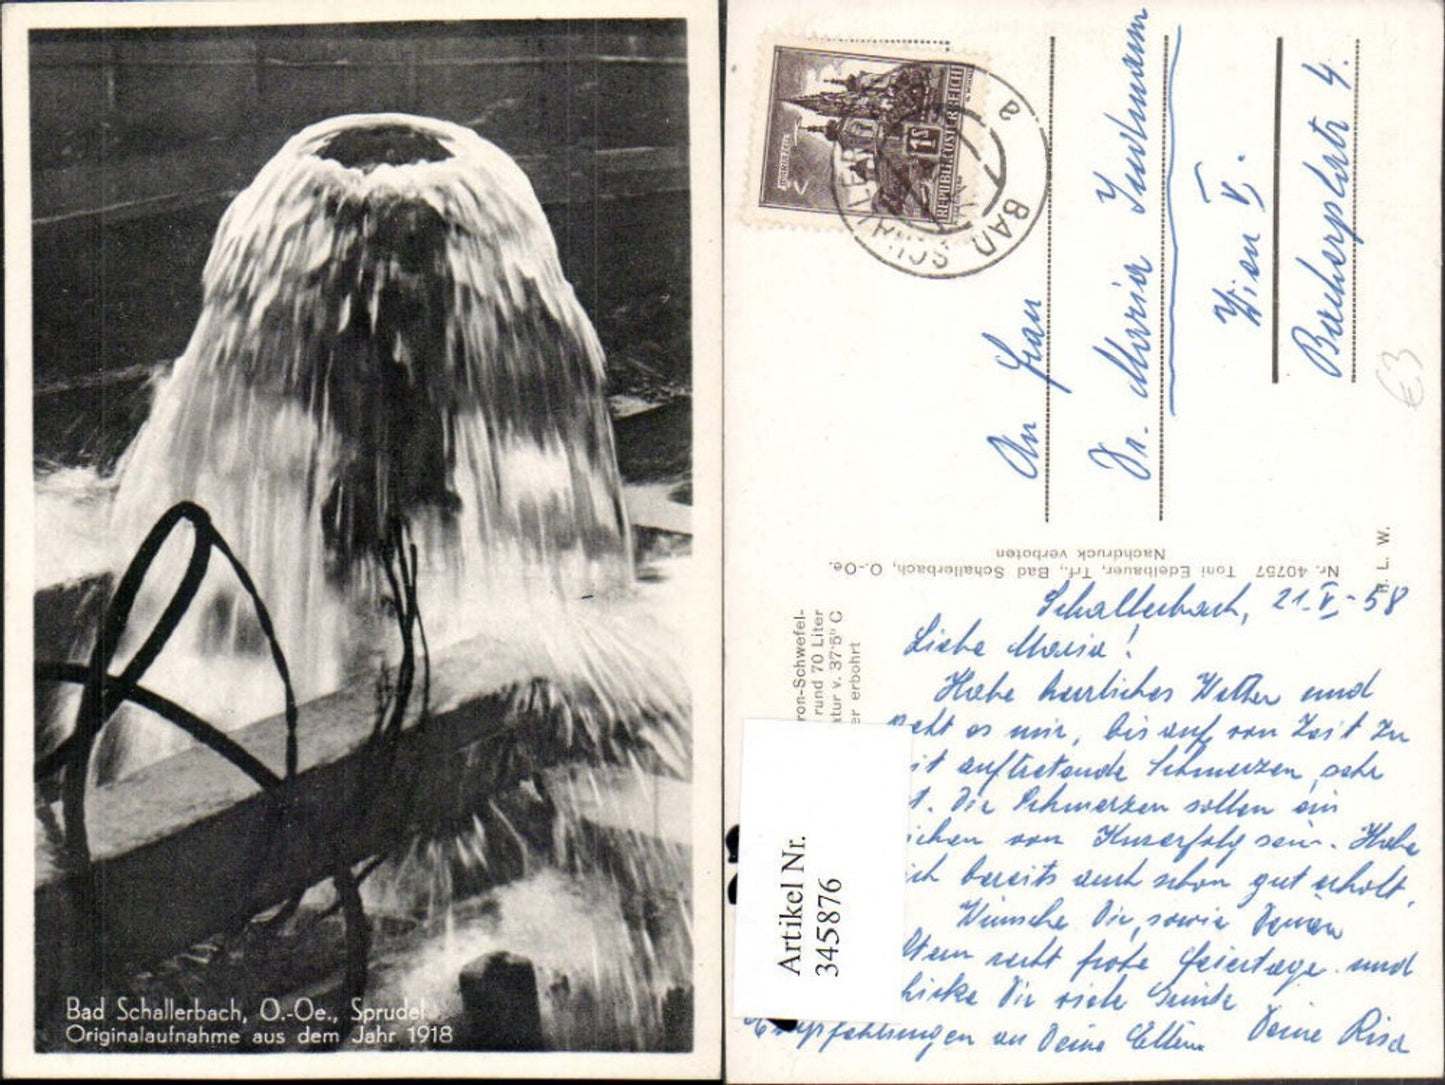 Bad Schallerbach, O.-Oe., Sprudel
Originalaufnahme aus dem Jahr 1918
REPUBLIK ÖSTERREICH
1S
BAD SCHALLERBACH
a
An Frau
Dr. Maria
Wien V.
Bacherplatz 4.
€3
Nr. 40757 Toni Edelbauer, Trf., Bad Schallerbach, O.-Oe.
Nachdruck verboten
H. L. W.
ron-Schwefel-
rund 70 Liter
atur v. 37·5° C
er erbohrt
Artikel Nr.
345876
Schallerbach, 21.V.58
Liebe Maria!
Habe herrliches Wetter und
geht es mir, bis auf von Zeit zu
it auftretende Schmerzen sehr
t. Die Schmerzen sollen ein
ichen von Kurerfolg sein. Habe
ich bereits auch schon gut erholt.
Wünsche Dir, sowie Deinen
ltern recht frohe Feiertage und
hicke Dir viele Grüße
Empfehlungen an Deine Eltern Deine Risa